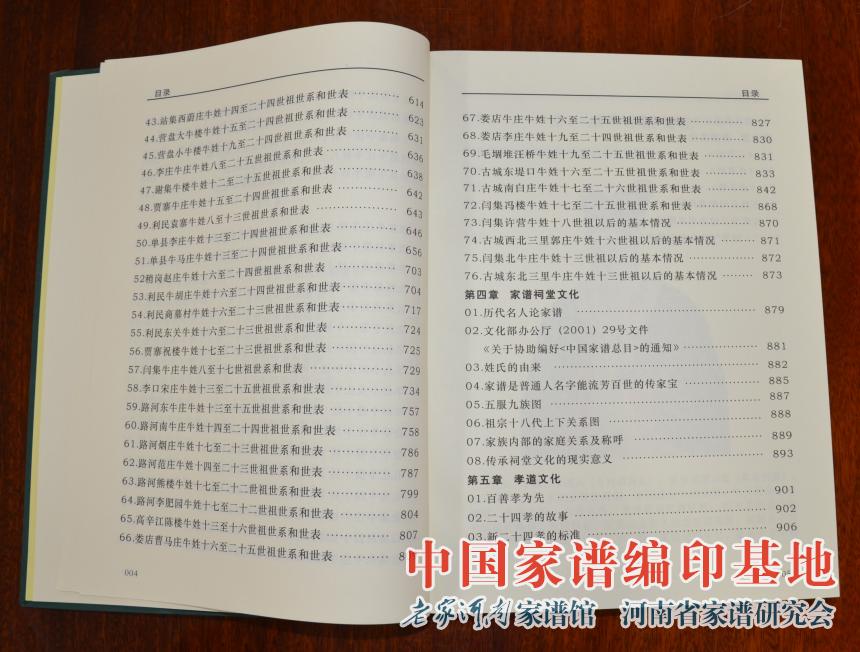 目录
43.站集西蔚庄牛姓十四至二十四世祖世系和世表 ………… 614
44.营盘大牛楼牛姓十五至二十四世祖世系和世表 ………… 623
45.营盘小牛楼牛姓十九至二十四世祖世系和世表 ………… 631
46.李庄牛庄牛姓八至二十五世祖世系和世表 ………… 636
47.谢集牛楼牛姓十二至二十五世祖世系和世表 ………… 638
48.贾寨牛庄牛姓十五至二十四世祖世系和世表 ………… 642
49.利民袁寨牛姓八至十三世祖世系和世表 ………… 643
50.单县李庄牛姓十三至二十三世祖世系和世表 ………… 646
51.单县牛马庄牛姓十三至二十四世祖世系和世表 ………… 656
52稍岗赵庄牛姓十六至二十三世祖世系和世表 ………… 703
53.利民牛胡庄牛姓十六至二十三世祖世系和世表 ………… 704
54.利民商墓村牛姓十六至二十三世祖世系和世表 ………… 717
55.利民东关牛姓十六至二十三世祖世系和世表 ………… 724
56.贾寨祝楼牛姓十七至二十三世祖世系和世表 ………… 725
57.闫集牛庄牛姓八至十七世祖世系和世表 ………… 729
58.李口宋庄牛姓十三至二十五世祖世系和世表 ………… 734
59.路河东牛庄牛姓十三至十五世祖世系和世表 ………… 757
60.路河南牛庄牛姓十四至二十四世祖世系和世表 ………… 758
61.路河烟庄牛姓十七至二十三世祖世系和世表 ………… 786
62.路河范庄牛姓十四至二十三世祖世系和世表 ………… 787
63.路河熊楼牛姓十七至二十二世祖世系和世表 ………… 799
64.路河李肥园牛姓十七至二十二世祖世系和世表 ………… 804
65.高辛江陈楼牛姓十三至十六世祖世系和世表 ………… 807
66.娄店曹马庄牛姓十六至二十五世祖世系和世表 ………… 8
004
目录
67.娄店牛庄牛姓十六至二十五世祖世系和世表 ………… 827
68.娄店李庄牛姓十九至二十四世祖世系和世表 ………… 830
69.毛堌堆汪桥牛姓十九至二十五世祖世系和世表 ………… 831
70.古城东堤口牛姓十六至二十五世祖世系和世表 ………… 833
71.古城南白庄牛姓十七至二十六世祖世系和世表 ………… 842
72.闫集冯楼牛姓十七至二十五世祖世系和世表 ………… 868
73.闫集许营牛姓十八世祖以后的基本情况 ………… 870
74.古城西北三里郭庄牛姓十六世祖以后的基本情况 ………… 871
75.闫集北牛庄牛姓十三世祖以后的基本情况 ………… 872
76.古城东北三里牛庄牛姓十三世祖以后的基本情况 ………… 873
第四章 家谱祠堂文化
01.历代名人论家谱 ………… 879
02.文化部办公厅(2001)29号文件
《关于协助编好<中国家谱总目>的通知》 ………… 881
03.姓氏的由来 ………… 882
04.家谱是普通人名字能流芳百世的传家宝 ………… 885
05.五服九族图 ………… 887
06.祖宗十八代上下关系图 ………… 888
07.家族内部的家庭关系及称呼 ………… 889
08.传承祠堂文化的现实意义 ………… 893
第五章 孝道文化
01.百善孝为先 ………… 901
02.二十四孝的故事 ………… 902
03.新二十四孝的标准 ………… 906
中国家谱编印基地
老家河南家谱馆 河南省家谱研究会